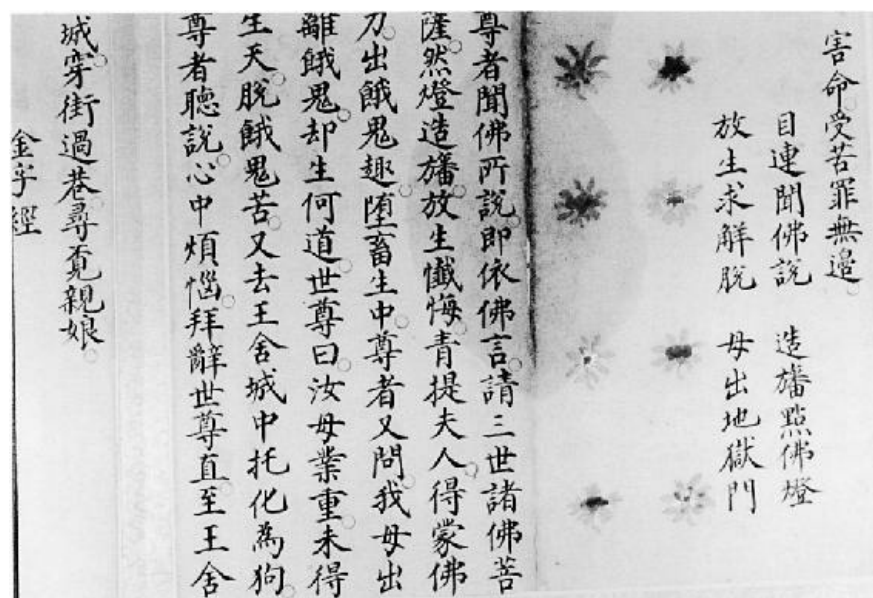 害命受苦罪無邉
目連聞佛說　造旛㸃佛燈
放生求解脫　母出地獄門
尊者聞佛所說即依佛言請三世諸佛菩
薩然燈造旛放生懺悔青提夫人得蒙佛
力出餓鬼趣墮畜生中尊者又問我母出
離餓鬼却生何道世尊曰汝母業重未得
生天脫餓鬼苦又去王舍城中托化為狗
尊者聽說心中煩惱拜辭世尊直至王舍
城穿街過巷尋覔親娘
金字經